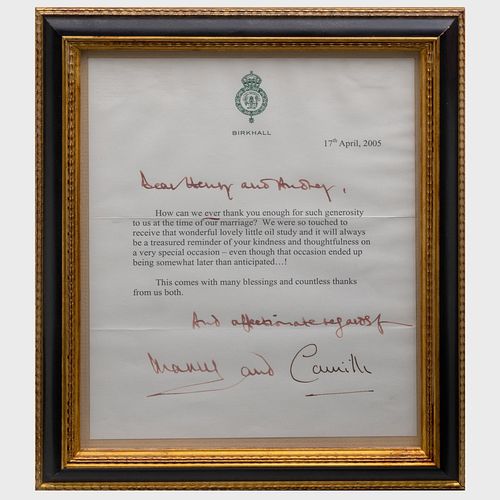 BIRKHALL
17th April, 2005
Dear Henry and Audrey,
How can we ever thank you enough for such generosity
to us at the time of our marriage? We were so touched to
receive that wonderful lovely little oil study and it will always
be a treasured reminder of your kindness and thoughtfulness on
a very special occasion – even though that occasion ended up
being somewhat later than anticipated…!
This comes with many blessings and countless thanks
from us both.
And affectionate regards
and Camilla